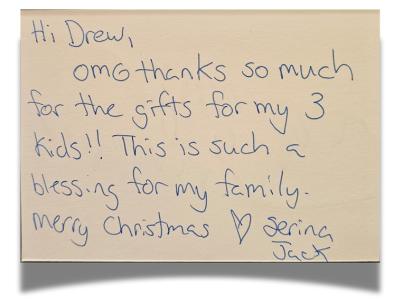 Hi Drew,
omG thanks so much
for the gifts for my 3
kids!! This is such a
blessing for my family.
merry Christmas ♡ Serina
Jack